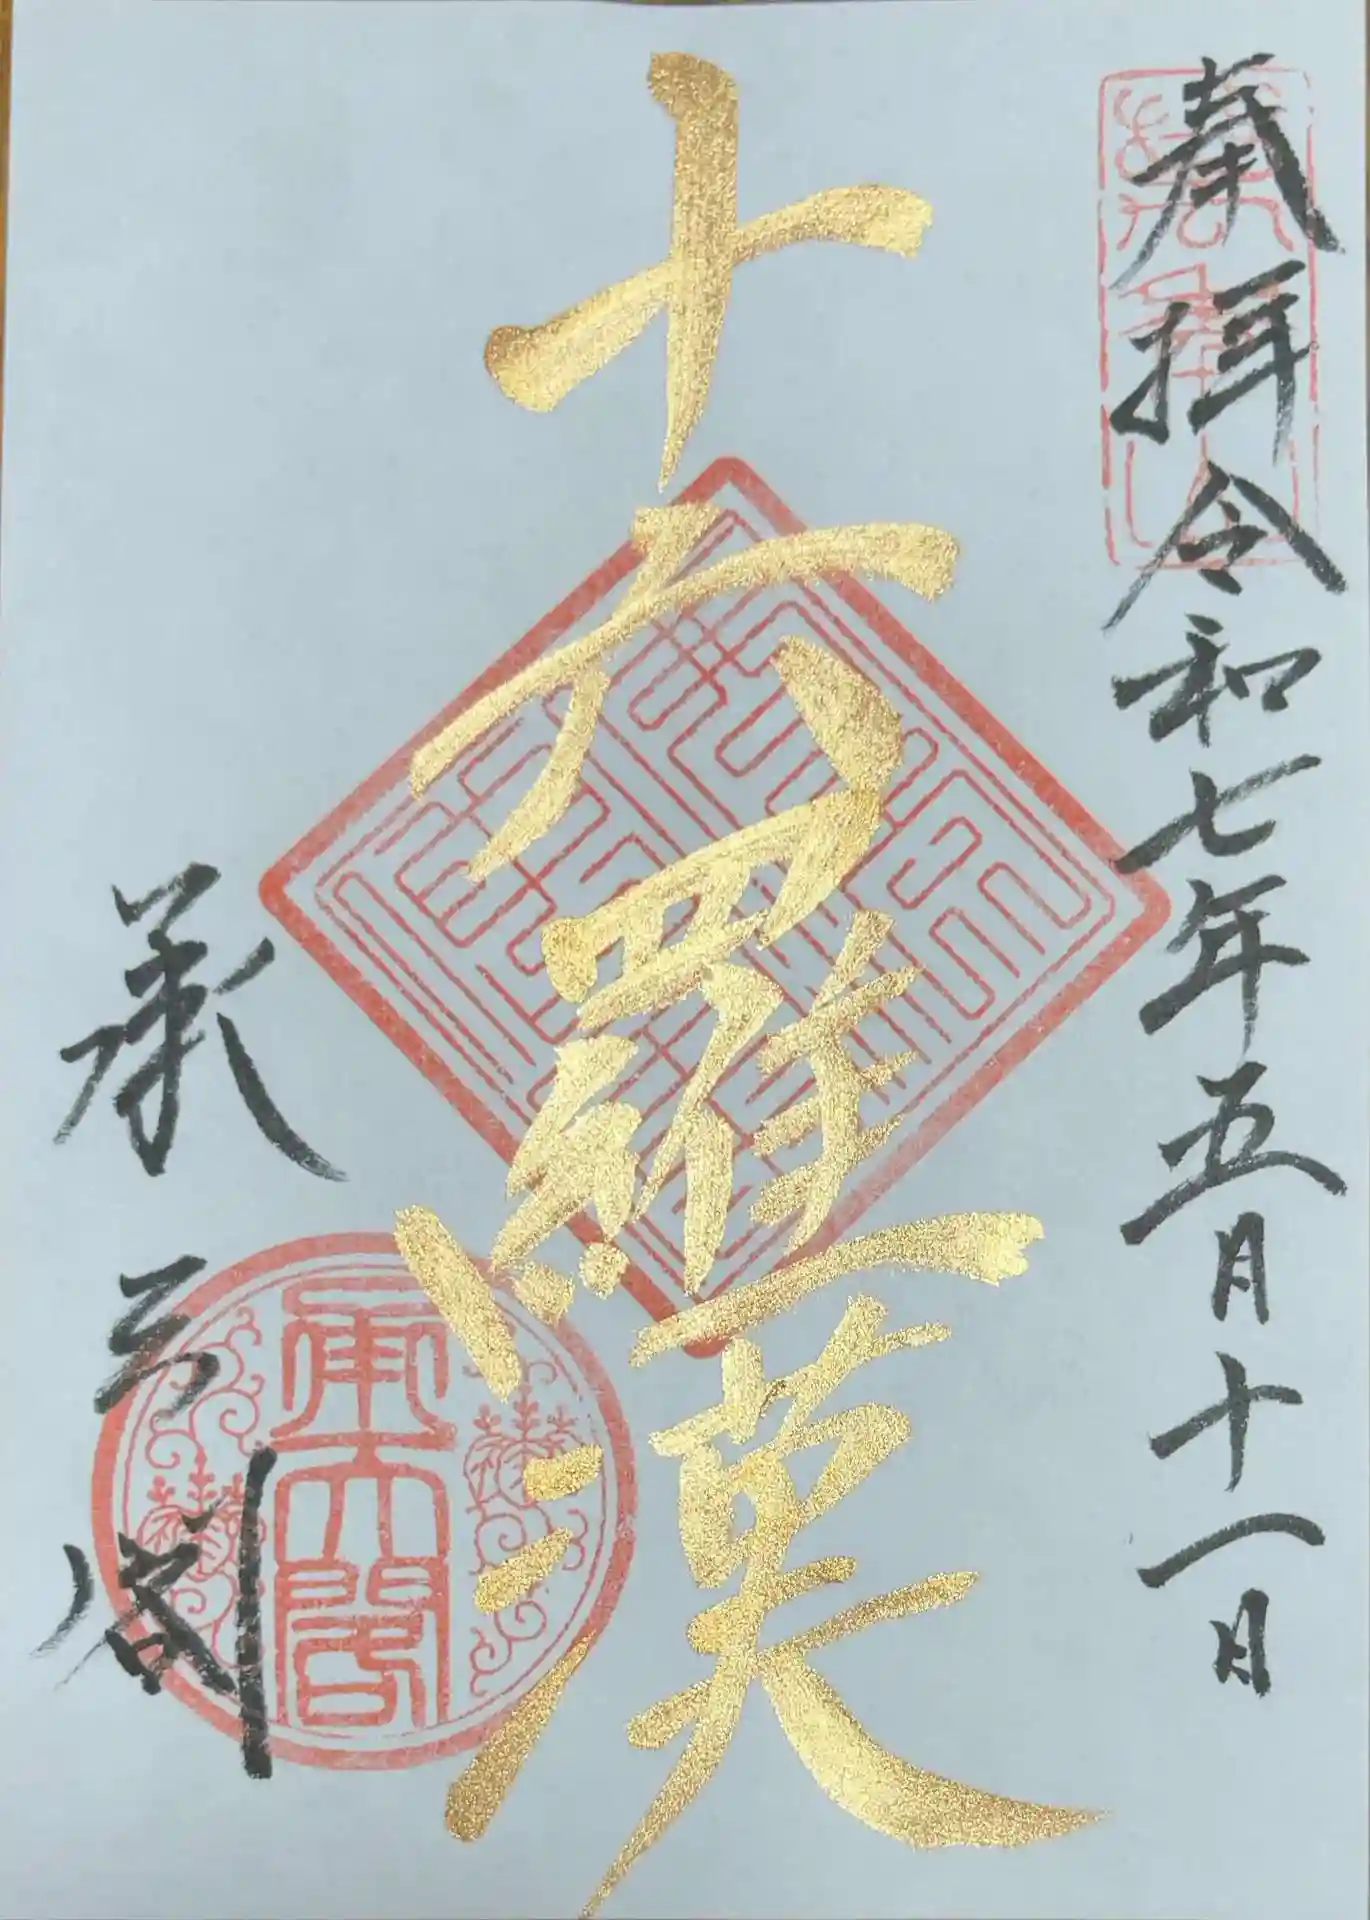 奉拝 令和七年五月十一日
十六羅漢
承天閣
承天閣